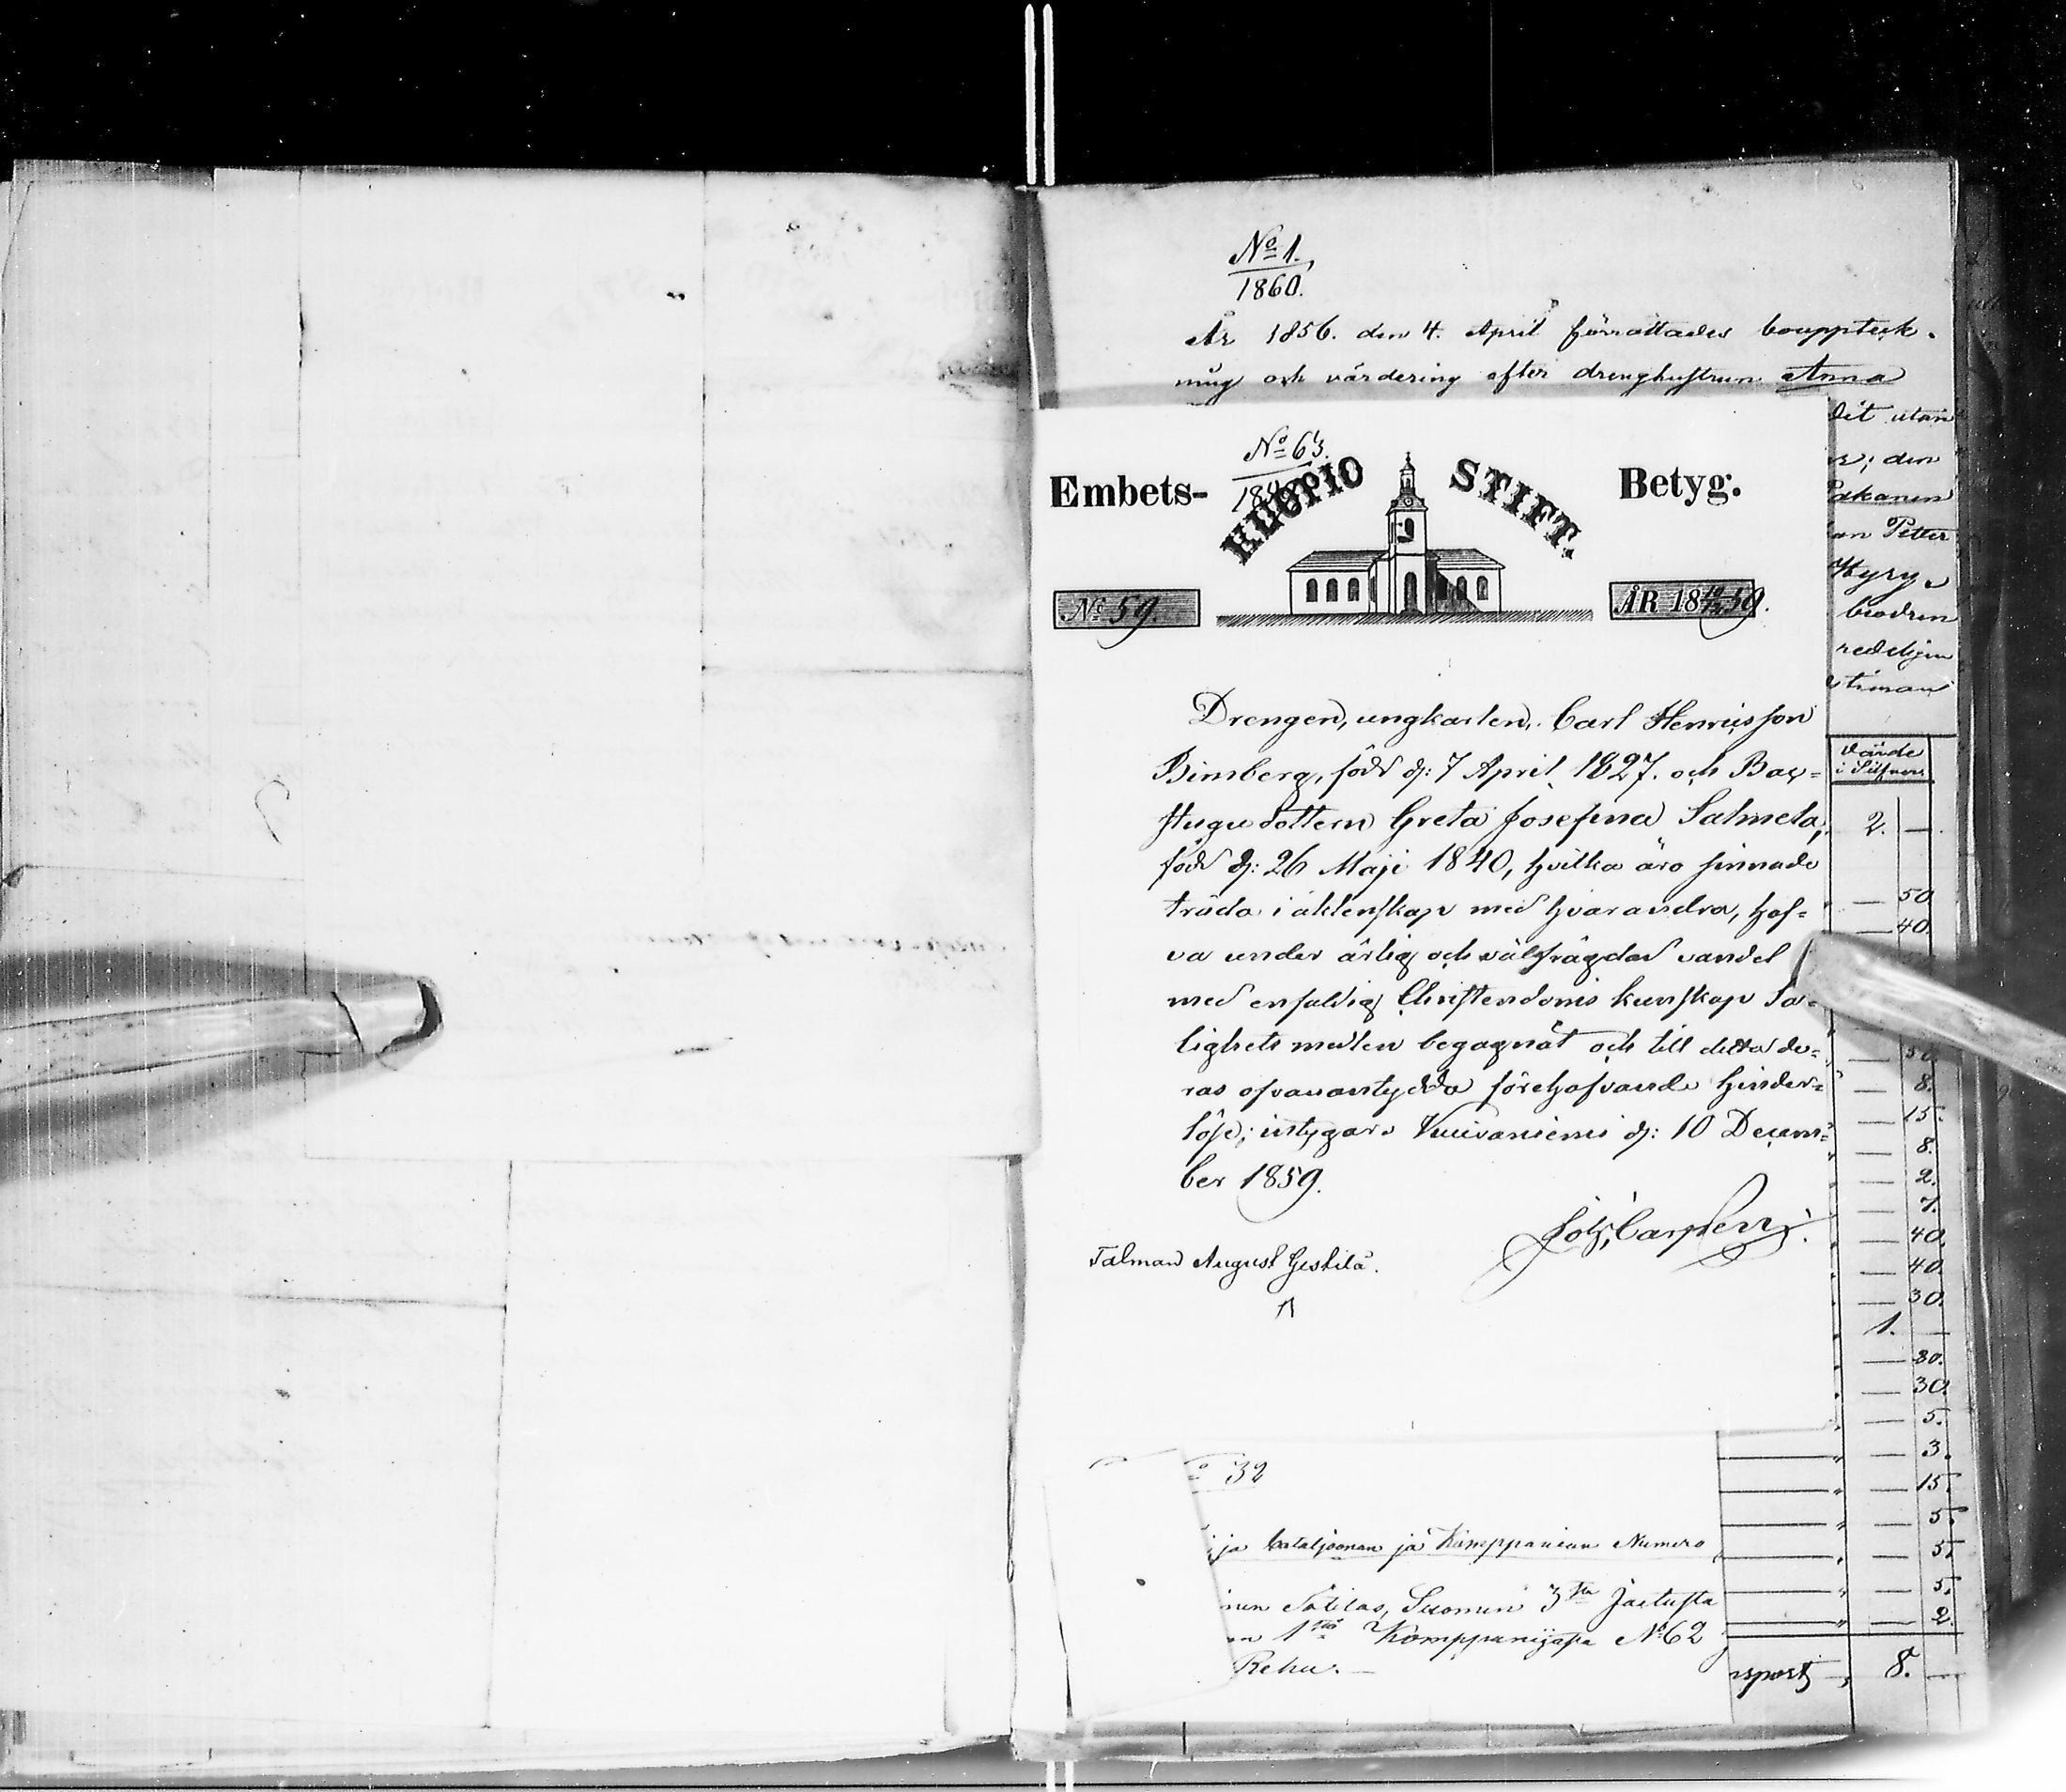 No 1.
1860.
År 1856. den 4. April förrättades bouppteck-
ning och värdering efter drenghustrun Anna
dit utan
den
Pakanen
an Petter
Kyry
brodren
No 63.
Embets- KUOPIO STIFT. Betyg.
No 59. ÅR 18 10/12 59.
värde
i Silfver
Drengen, ungkarlen, Carl Henricsson
Bimberg, född d: 7 April 1827. och Bac-
stugu dottern Greta Josefina Salmela,
född d: 26 Maji 1840, hvilka äro sinnade
träda i äktenskap med hvarandra, haf-
va under ärlig och välfrägdad vandel
med enfaldig Christendoms kunskap Sa-
lighets medlen begagnat och till detta de-
ras ofvanantydda förehafvande hinder-
löse; intygar. Vuivaniemi d: 10 Decem-
ber 1859.
Joh. Carpen
Talman August Geskilä.
2. —
— 50
— 40.
— 8.
— 15.
— 8.
— 2.
— 7.
— 40.
— 40.
— 30.
1. —
— 30.
— 30.
— 5.
— 3.
— 15.
— 5.
— 5.
— 5.
— 2.
32
ja bataljoonan ja Komppanian Numero
nen Sotilas, Suomen 3 Jaetusta
1 Komppaniasa No 62
Rehu. —
nsport 8. —